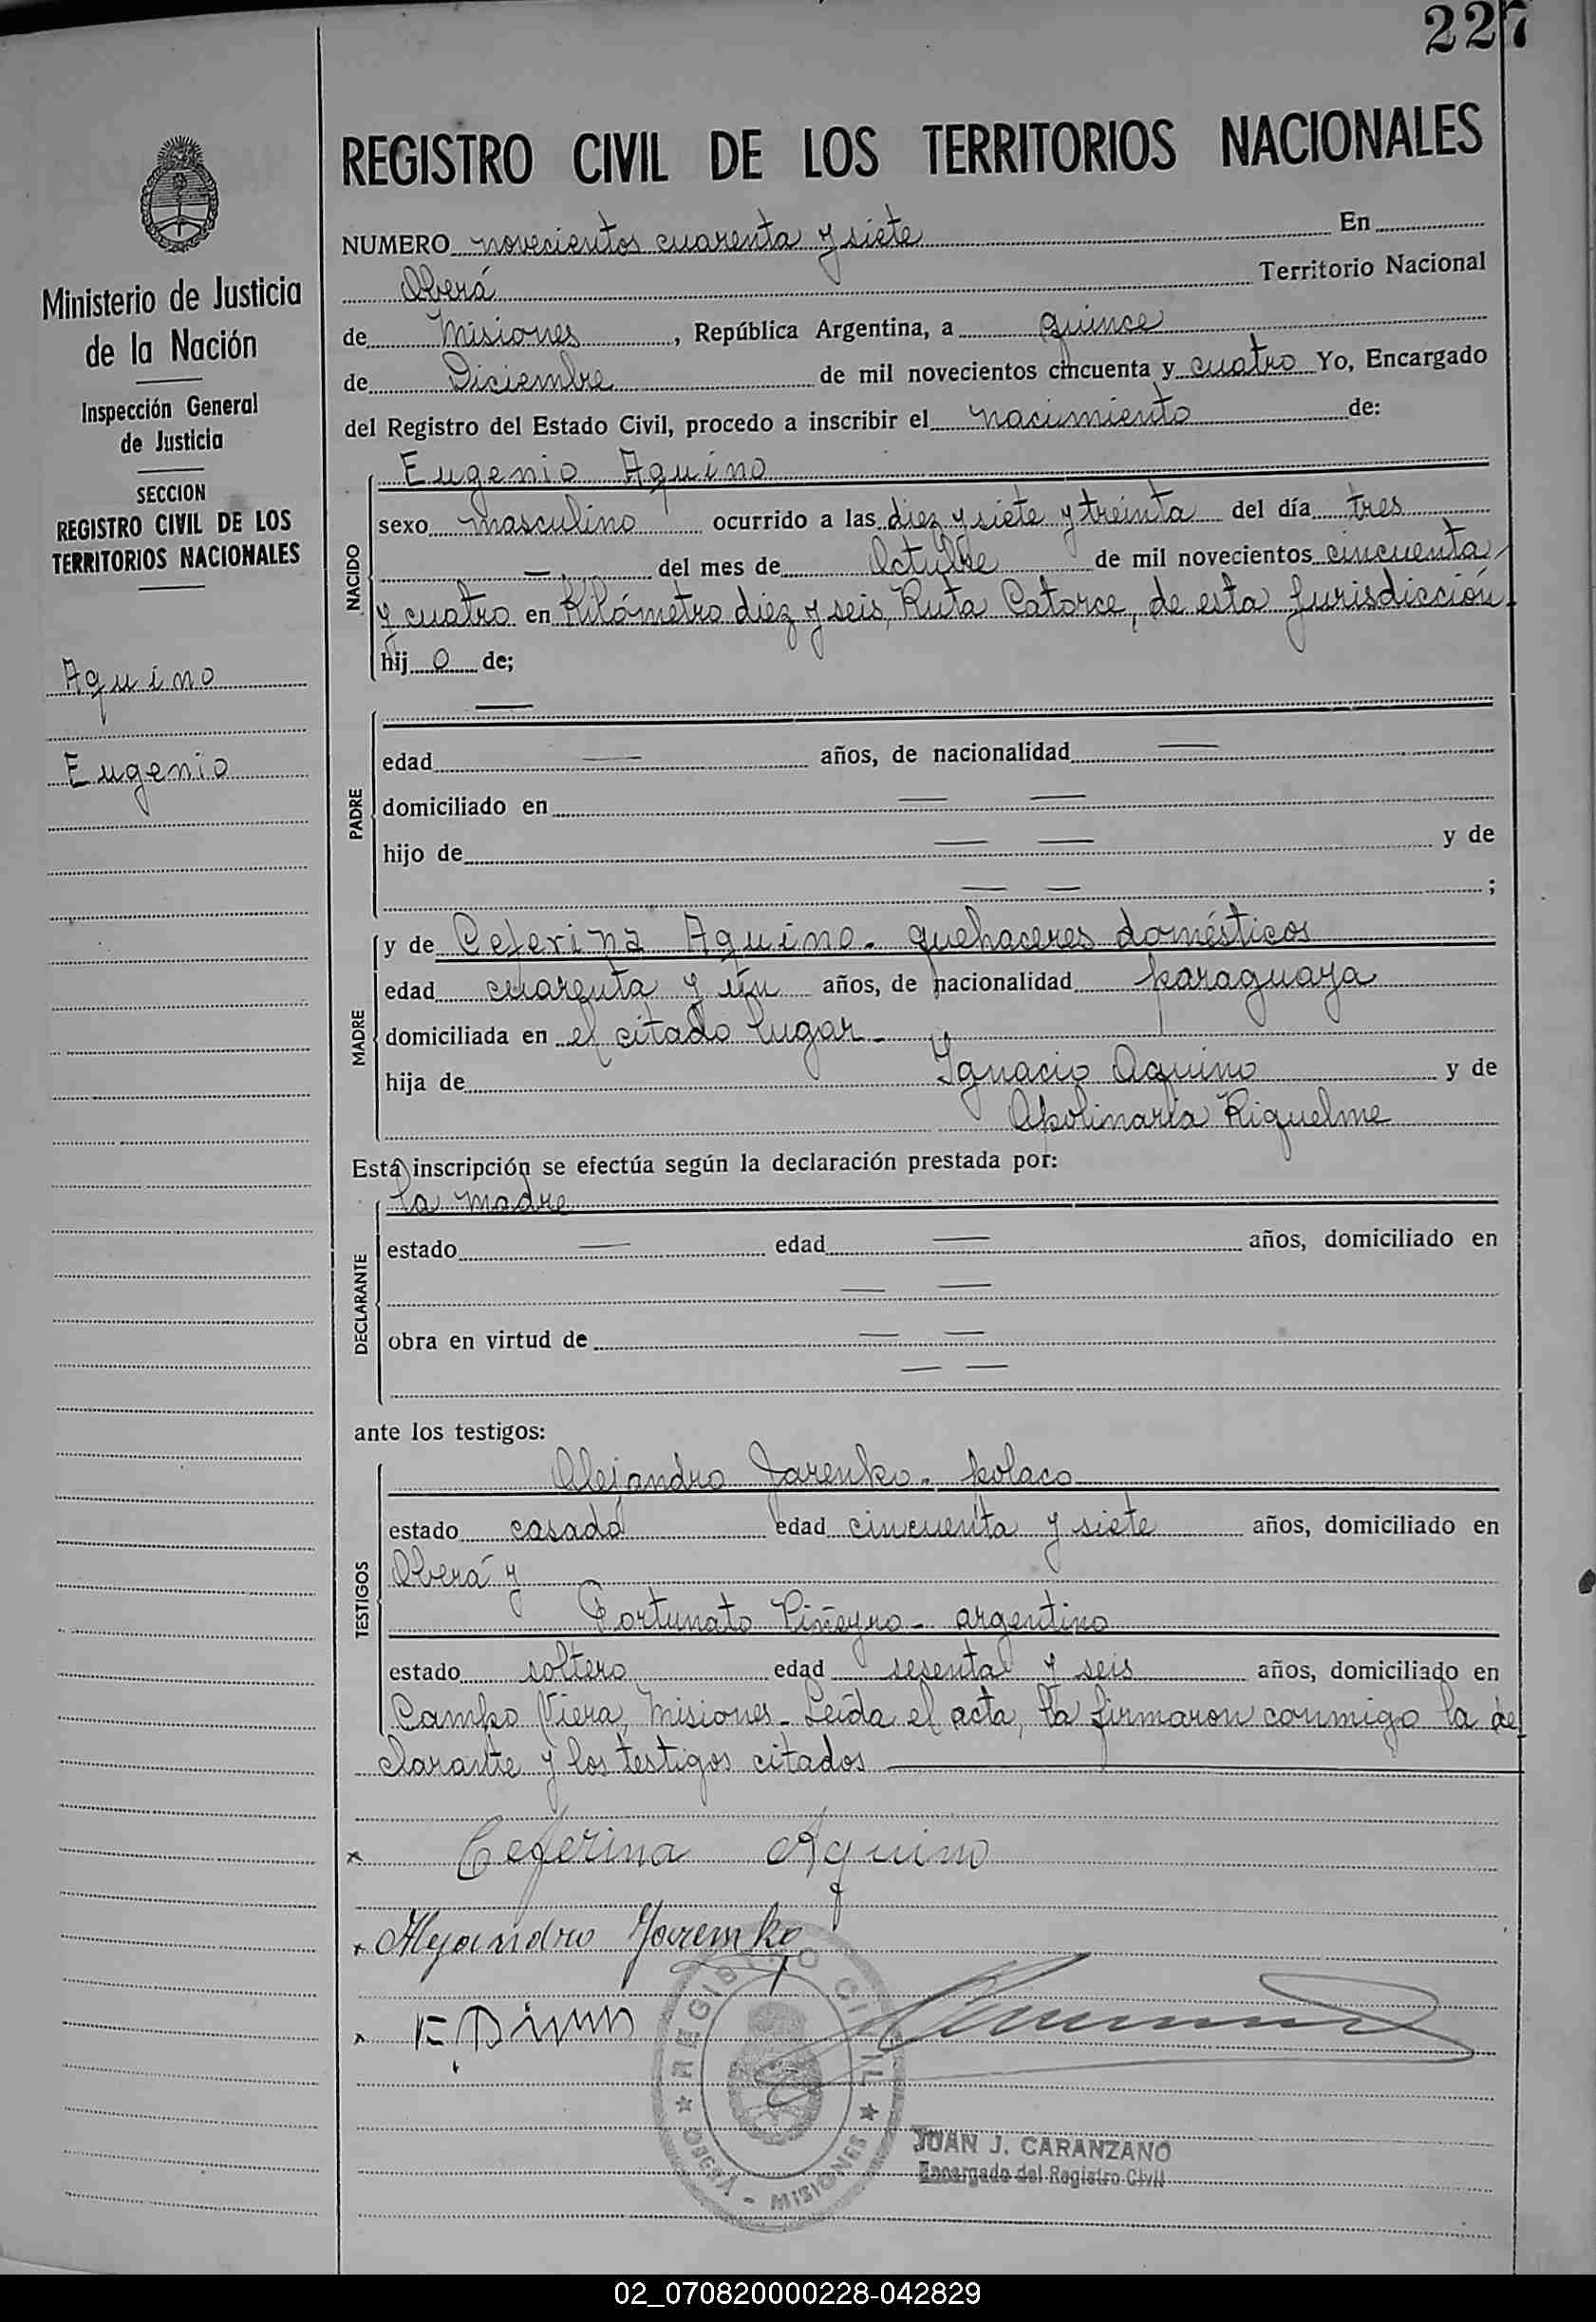 227
REGISTRO CIVIL DE LOS TERRITORIOS NACIONALES
Ministerio de Justicia
de la Nación
Inspección General
de Justicia
SECCION
REGISTRO CIVIL DE LOS
TERRITORIOS NACIONALES
Aquino
Eugenio
NUMERO novecientos cuarenta y siete En
Oberá Territorio Nacional
de Misiones, República Argentina, a quince
de Diciembre de mil novecientos cincuenta y cuatro Yo, Encargado
del Registro del Estado Civil, procedo a inscribir el nacimiento de:
NACIDO
Eugenio Aquino
sexo masculino ocurrido a las diez y siete y treinta del día tres
— del mes de Octubre de mil novecientos cincuenta
y cuatro en Kilómetro diez y seis, Ruta Catorce, de esta Jurisdicción
hij o de;
PADRE
—
edad — años, de nacionalidad —
domiciliado en — —
hijo de — — y de
— — ;
MADRE
y de Ceferina Aquino - quehaceres domésticos
edad cuarenta y un años, de nacionalidad paraguaya
domiciliada en el citado lugar -
hija de Ignacio Aquino y de
Apolinaria Riquelme
Esta inscripción se efectúa según la declaración prestada por:
DECLARANTE
la madre
estado — edad — años, domiciliado en
— —
obra en virtud de — —
— —
ante los testigos:
TESTIGOS
Alejandro Jarenko - polaco
estado casado edad cincuenta y siete años, domiciliado en
Oberá y
Fortunato Piñeyro - argentino
estado soltero edad sesenta y seis años, domiciliado en
Campo Viera, Misiones - Leída el acta, la firmaron conmigo la de
clarante y los testigos citados
x Ceferina Aquino
x Alejandro Jaremko
x
REGISTRO CIVIL
OBERÁ - MISIONES
JUAN J. CARANZANO
Encargado del Registro Civil
02_070820000228-042829